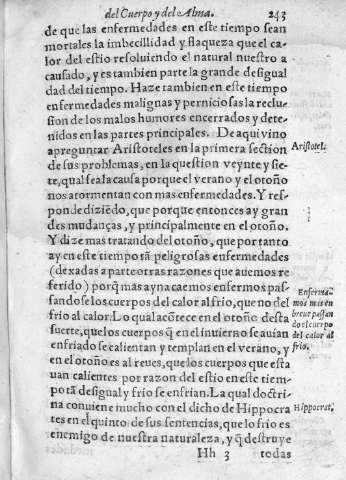 del Cuerpo y del Alma. 243
de que las enfermedades en este tiempo sean
mortales la imbecillidad y flaqueza que el ca-
lor del estio resoluiendo el natural nuestro a
causado, y es tambien parte la grande desigual
dad del tiempo. Haze tambien en este tiempo
enfermedades malignas y perniciosas la reclu-
sion de los malos humores encerrados y dete-
nidos en las partes principales. De aqui vino
a preguntar Aristoteles en la primera section
Aristotel.
de sus problemas, en la question veynte y sie-
te, qual sea la causa porque el verano y el otoño
nos atormentan con mas enfermedades. Y res-
ponde diziẽdo, que porque entonces ay gran
des mudanças, y principalmente en el otoño.
Y dize mas tratando del otoño, que por tanto
ay en este tiempo tã peligrosas enfermedades
(dexadas a parte otras razones que auemos re-
ferido) porq̃ mas ayna caemos enfermos pas-
sando se los cuerpos del calor al frio, que no del
frio al calor. Lo qual acõtece en el otoño desta
suerte, que los cuerpos q̃ en el inuierno se auian
enfriado se calientan y templan en el verano, y
en el otoño es al reues, que los cuerpos que esta
uan calientes por razon del estio en este tiem-
po tã desigual y frio se enfrian. La qual doctri-
na conuiene mucho con el dicho de Hippocra
tes en el quinto de sus sentencias, que lo frio es
enemigo de nuestra naturaleza, y q̃ destruye
Enferma-
mos mas en
breue passan
do el cuerpo
del calor al
frio.
Hippocrat.
Hh 3 todas